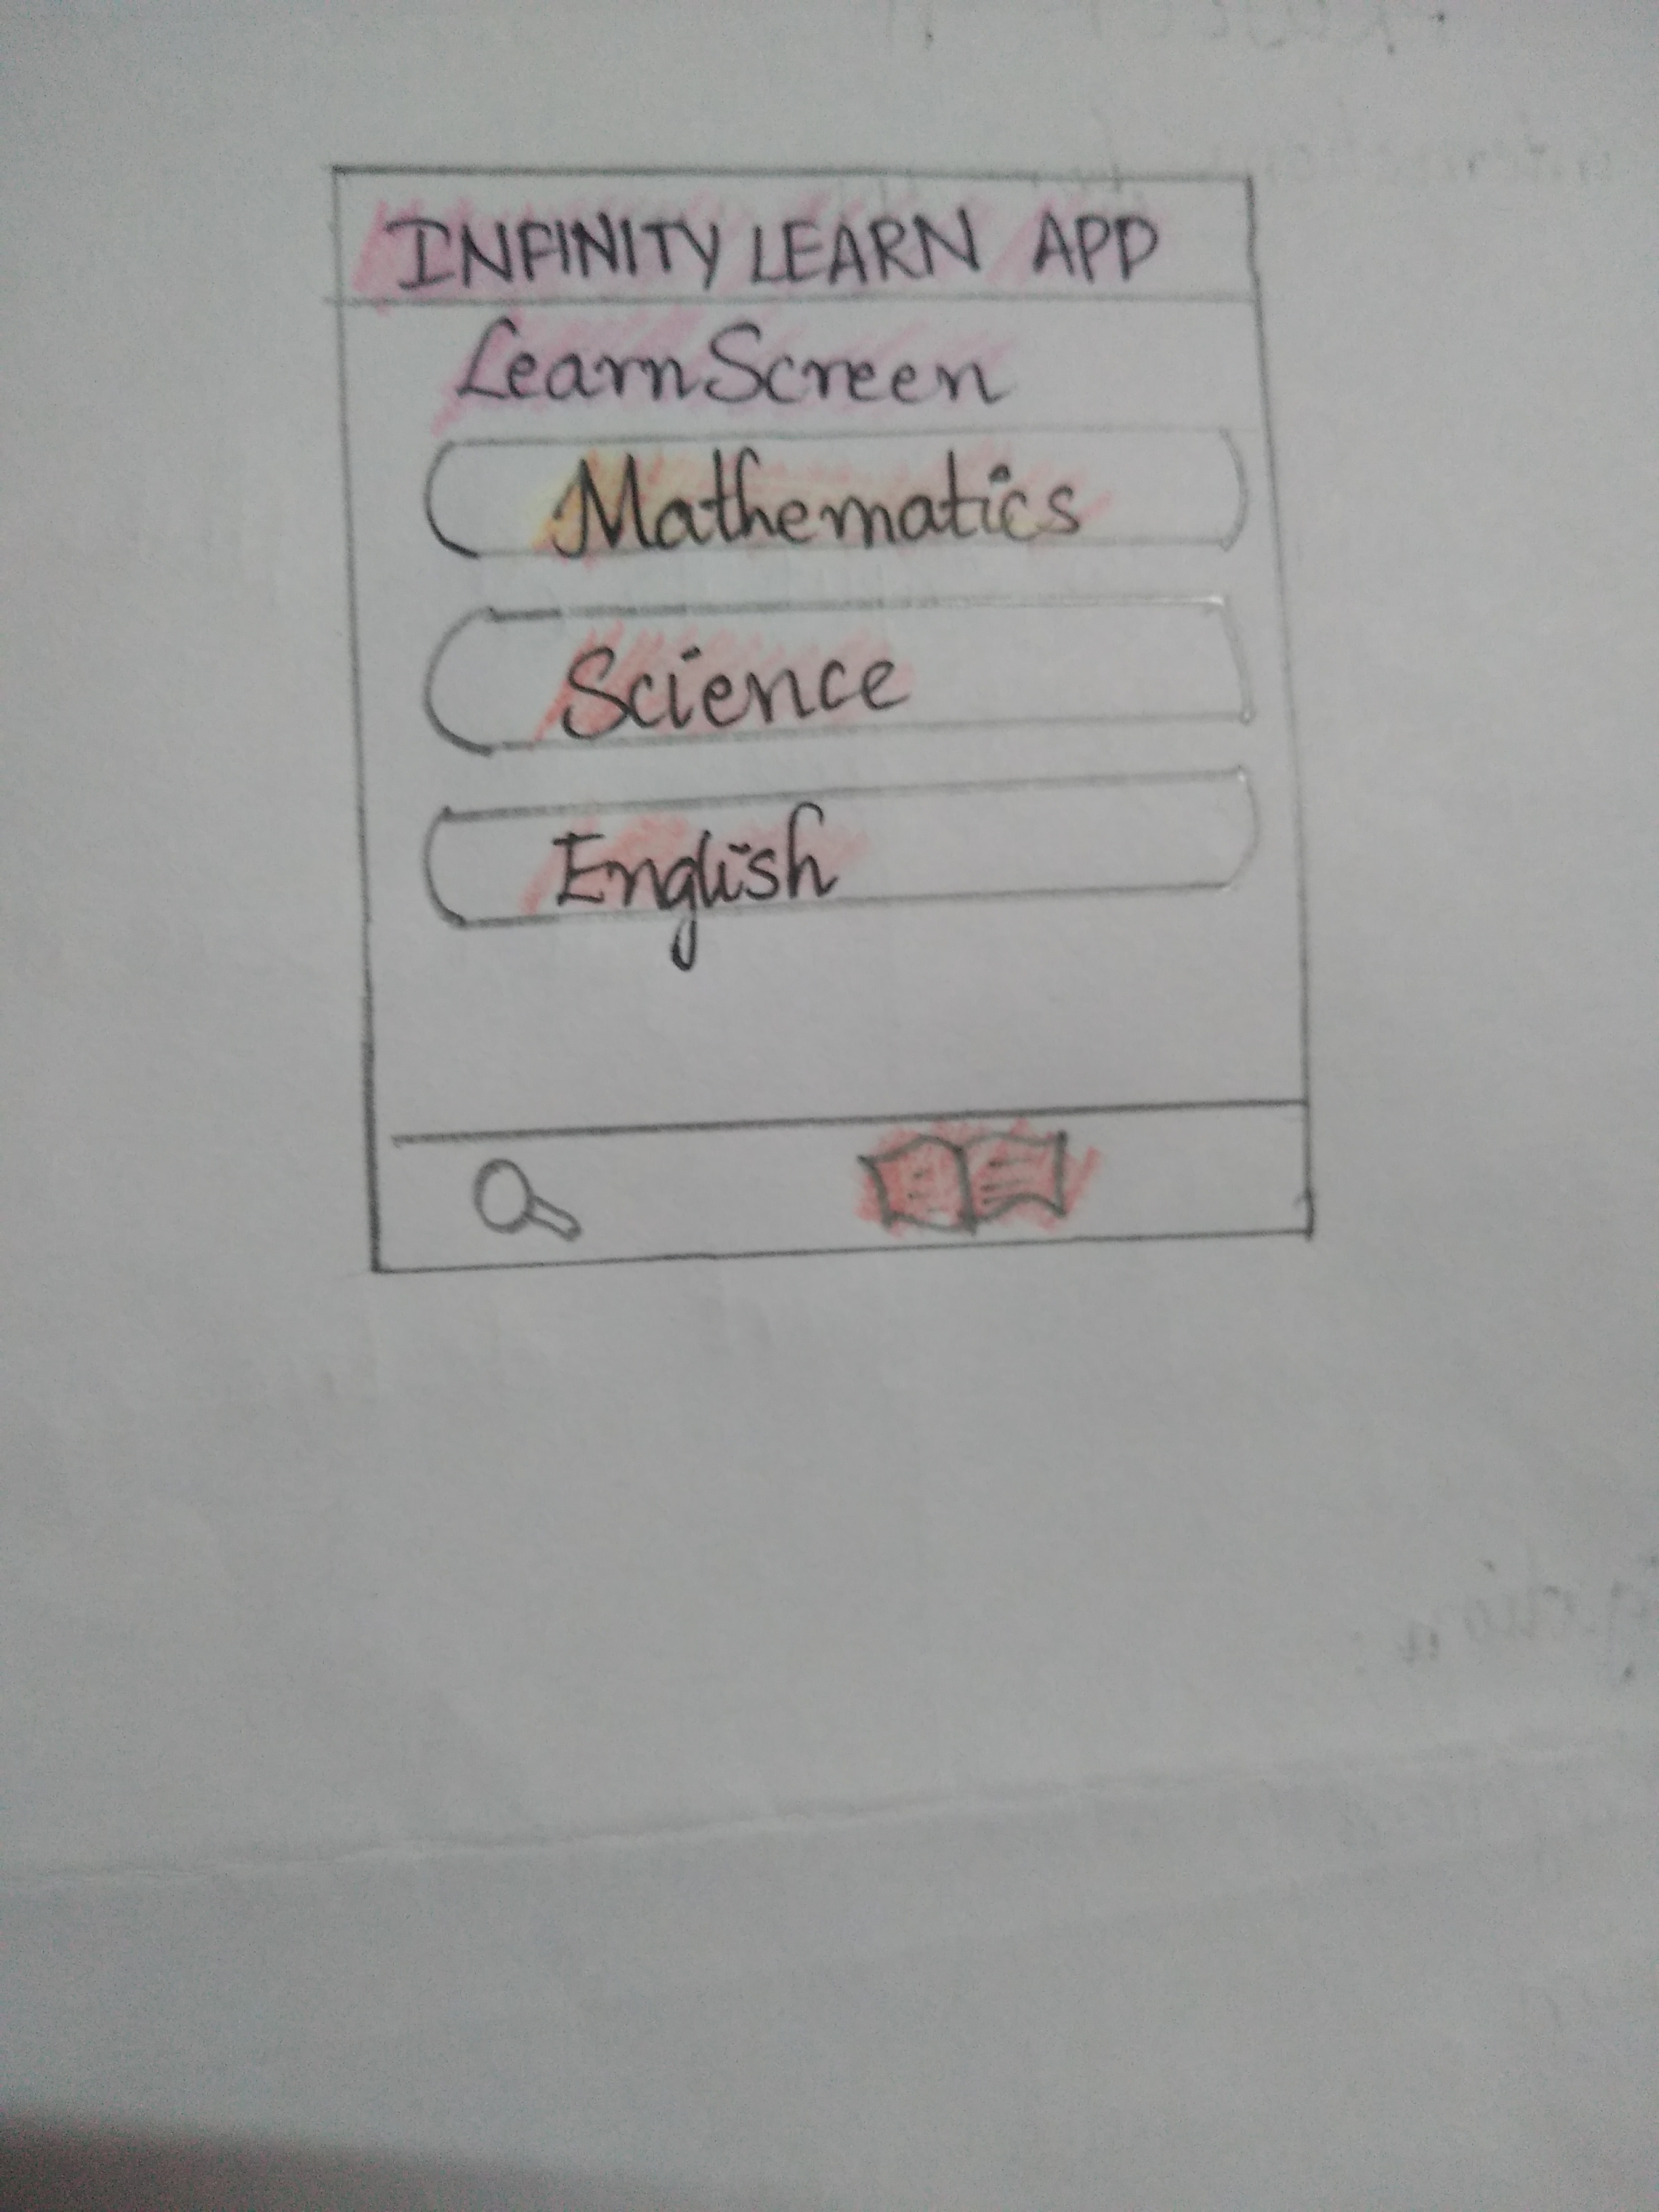 INFINITY LEARN APP
Learn Screen
Mathematics
Science
English